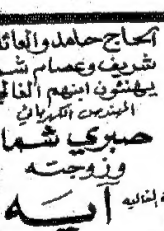 الحاج حامد والعائلة
شريف وعصام
يهنئون ابنهم الغالي
المهندس الكهربائي
صبري شما
وزوجته
آيه
الغاليه